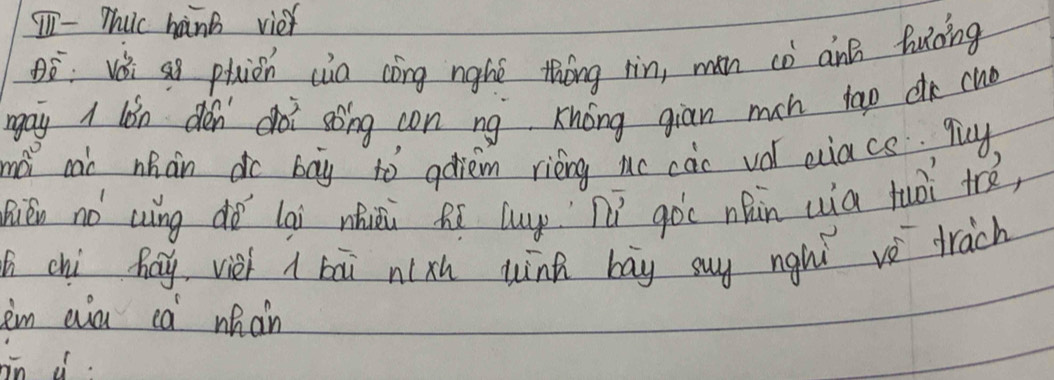 III- Thực hành viết
Đề: Với sự ptriển của công nghệ thông tin, mxh có ảnh hưởng
ngày 1 lớn đến đời sống con ng. Không gian mxh tạo đk cho
mỗi cá nhân đc bày tỏ qđiểm riêng trc các vđ của cs. Tuy
nhiên nó cũng để lại nhiều hệ lụy. Từ góc nhìn của tuổi trẻ,
h chị hãy viết 1 bài nlxh trình bày suy nghĩ về trách
ệm của cá nhân
ý: